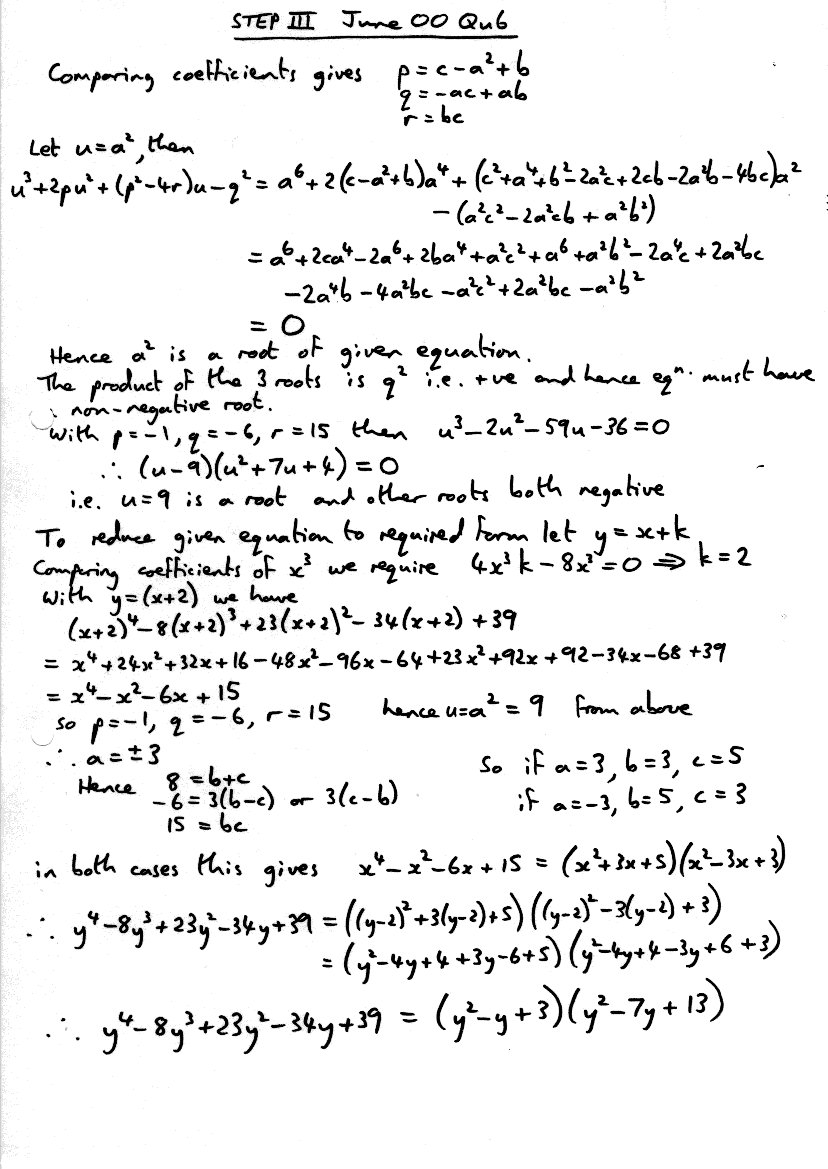 STEP III June 00 Qu6
Comparing coefficients gives p = c - a² + b
q = -ac + ab
r = bc
Let u = a², then
u³ + 2pu² + (p² - 4r)u - q² = a⁶ + 2(c - a² + b)a⁴ + (c² + a⁴ + b² - 2a²c + 2cb - 2a²b - 4bc)a²
- (a²c² - 2a²cb + a²b²)
= a⁶ + 2ca⁴ - 2a⁶ + 2ba⁴ + a²c² + a⁶ + a²b² - 2a⁴c + 2a²bc
- 2a⁴b - 4a²bc - a²c² + 2a²bc - a²b²
= 0
Hence a² is a root of given equation.
The product of the 3 roots is q² i.e. +ve and hence eqⁿ. must have
non-negative root.
With p = -1, q = -6, r = 15 then u³ - 2u² - 59u - 36 = 0
∴ (u - 9)(u² + 7u + 4) = 0
i.e. u = 9 is a root and other roots both negative
To reduce given equation to required form let y = x + k
Comparing coefficients of x³ we require 4x³k - 8x³ = 0 ⇒ k = 2
With y = (x+2) we have
(x+2)⁴ - 8(x+2)³ + 23(x+2)² - 34(x+2) + 39
= x⁴ + 24x² + 32x + 16 - 48x² - 96x - 64 + 23x² + 92x + 92 - 34x - 68 + 39
= x⁴ - x² - 6x + 15
so p = -1, q = -6, r = 15 hence u = a² = 9 from above
∴ a = ±3
Hence 8 = b + c
-6 = 3(b - c) or 3(c - b)
15 = bc
So if a = 3, b = 3, c = 5
if a = -3, b = 5, c = 3
in both cases this gives x⁴ - x² - 6x + 15 = (x² + 3x + 5)(x² - 3x + 3)
∴ y⁴ - 8y³ + 23y² - 34y + 39 = ((y-2)² + 3(y-2) + 5)((y-2)² - 3(y-2) + 3)
= (y² - 4y + 4 + 3y - 6 + 5)(y² - 4y + 4 - 3y + 6 + 3)
∴ y⁴ - 8y³ + 23y² - 34y + 39 = (y² - y + 3)(y² - 7y + 13)